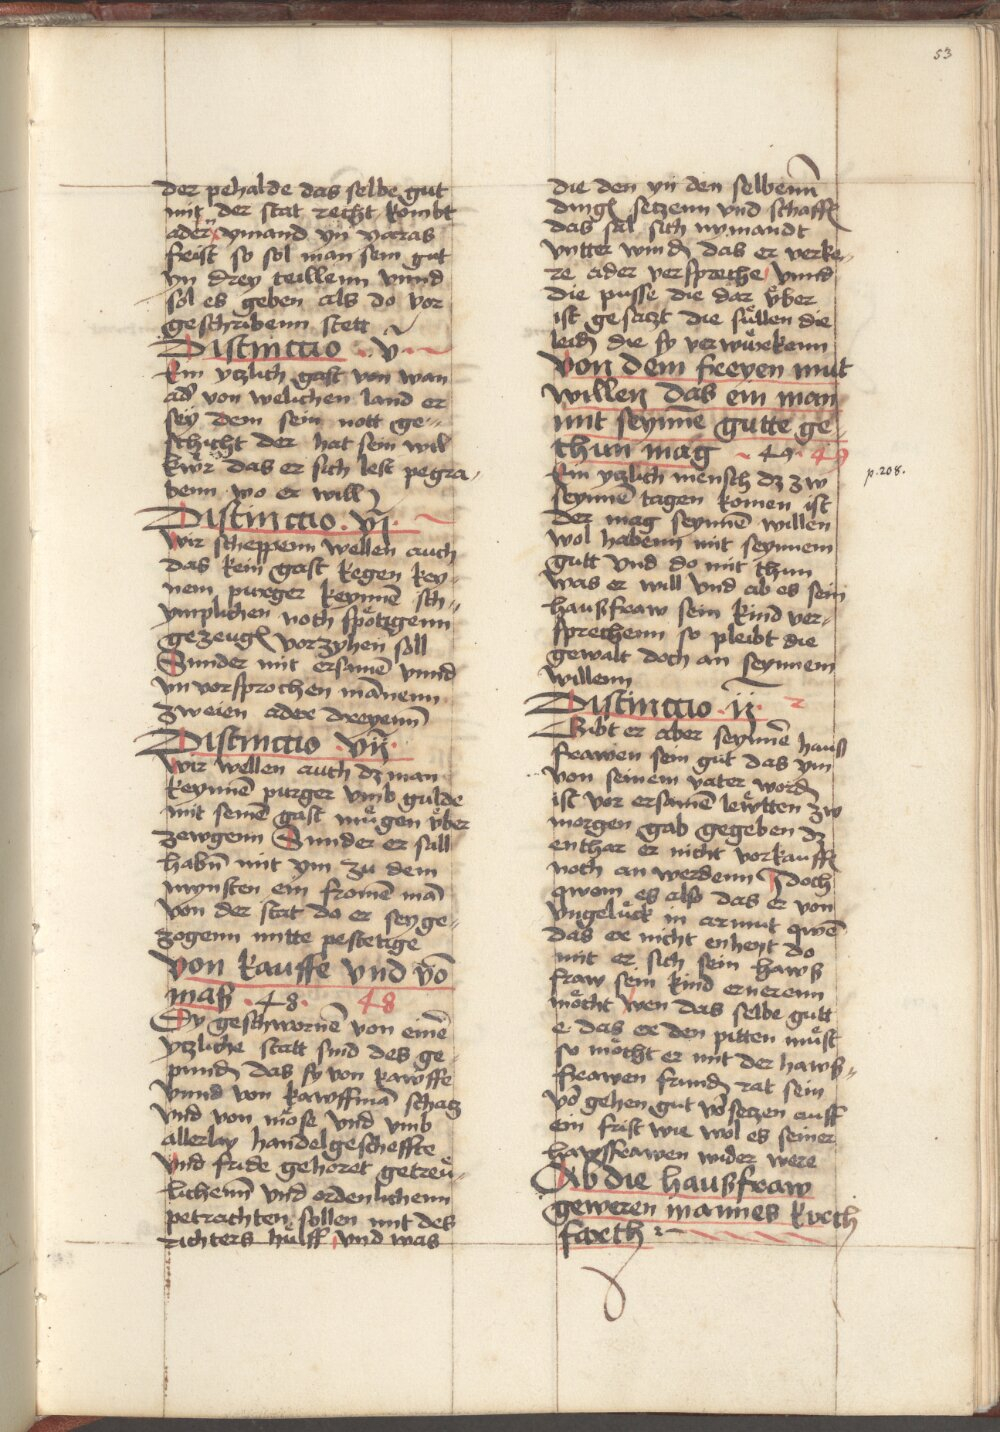 53
der pehalde das selbe gut
mit der stat recht kombt
ader ymand yn yaras
frist so sol man sein gut
yn drey teillenn vnnd
sol es geben als do vor
geschribenn stett
Distinctio · v ·
Ein yczlich gast von wan
ad' von welichen land er
sey dem sein nott ge-
schicht der hat sein wil
kwͤr das er sich lest pegra-
benn wo er will
Distinctio · vj ·
Wir scheppenn wellen auch
das kein gast kegen key-
nem purger keynnē sch-
ymplichen noch spoͤtigenn
gezeugē vorzyhen soll
Sunder mit ersamē vnnd
vnvorsprochen mānenn
zweien ader dreyenn̄
Distinctio · vij ·
Wir wellen auch dz man
keynnē purger vmb gulde
mit seinē gast muͤgen vͤber
zewgenn Sunder er sall
habn̄ mit ym zu dem
mynsten ein fromē mā
von der stat do er sey ge-
zogenn mitte pestetige
Von kauffe vnd vō
maß · 48 · 48
Dy geschwornē von einē
yczliche statt sind des ge-
pundē das sy von kawffe
vnnd von kawffmā schacz
vnd von moͤse vnd vmb
allerlay handelgescheffte
vnd fride gehoret getreuͤ-
lichenn̄ vnd ordenlichenn
petrachten sollen mit des
richters huͤlff vnd was
die den yn den selbenn̄
dingē setzenn vnd schaffē
das sal sich nymandt
vntter windē das er verke-
re ader verspreche vnnd
die pusse die dar vͤber
ist gesaczt die suͤllen die
leidē die sy verwuͤrckenn
Von dem freyen mut
willen das ein man
mit seynnē gutte ge-
thun mag 49 · 49
p. 208.
Ein yczlich mensch dz zw
seynnē tagen komen ist
der mag seynnē willen
wol habenn mit seynnem
gutt vnd do mit thun
was er will vnd ab es sein
hausfraw sein kind ver-
sprechenn so pleibt die
gewalt doch an seynnem
willenn
Distinctio · ij · 2
Gibt er aber seynnē hauß
frawen sein gut das ym
von seinem vater wordē
ist vor ersamē lewͤtten zw
morgen gab gegeben dz
enthar er nicht vorkauffē
noch an werdenn Jdoch
qwem es also das er von
vngeluͤck in armut qwē
das er nicht enhent do
mit er sich sein haws
fraw sein kind ernerenn
moͤcht wen das selbe gutt
e das er den pitten muͤst
so moͤcht er mit der haws-
frawen frundē rat sein
vō gehen gut vō setzen auff
ein frist wie wol es seiner
hawsfrawen wider were
Ab die hausfraw
geweren mannes kvech
faxeth